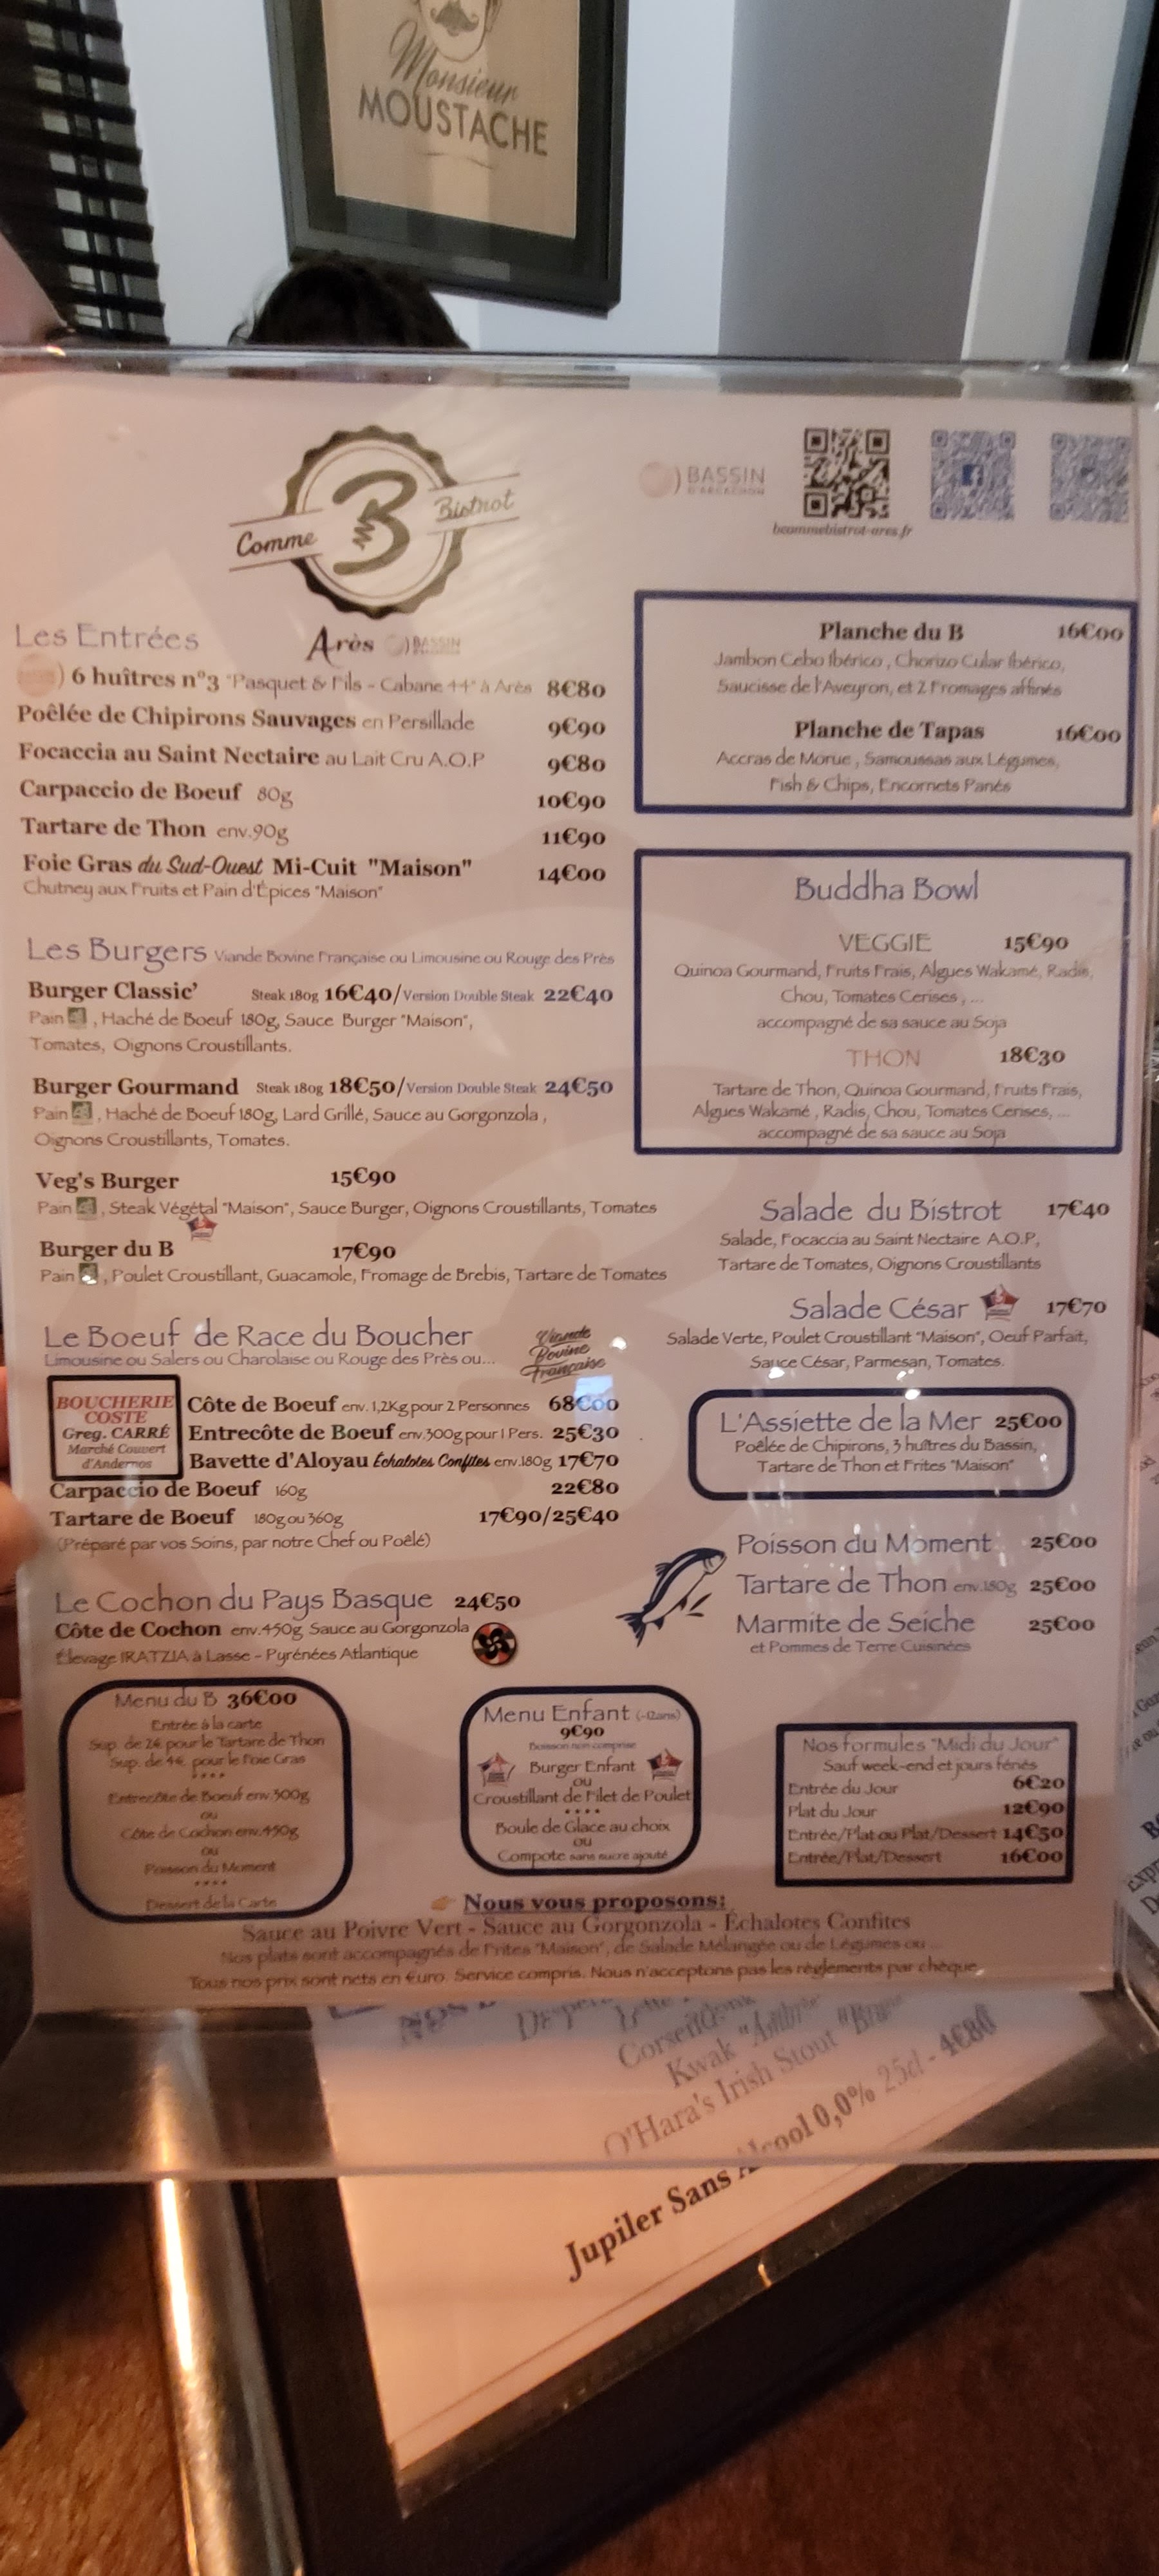 Monsieur
MOUSTACHE
Comme B Bistrot
Arès
BASSIN
BASSIN
D'ARCACHON
bcommebistrot-ares.fr
Les Entrées
6 huîtres n°3 "Pasquet & Fils - Cabane 44" à Arès 8€80
Poêlée de Chipirons Sauvages en Persillade 9€90
Focaccia au Saint Nectaire au Lait Cru A.O.P 9€80
Carpaccio de Boeuf 80g 10€90
Tartare de Thon env.90g 11€90
Foie Gras du Sud-Ouest Mi-Cuit "Maison" 14€00
Chutney aux Fruits et Pain d'Épices "Maison"
Les Burgers Viande Bovine Française ou Limousine ou Rouge des Près
Burger Classic' Steak 180g 16€40/Version Double Steak 22€40
Pain , Haché de Boeuf 180g, Sauce Burger "Maison",
Tomates, Oignons Croustillants.
Burger Gourmand Steak 180g 18€50/Version Double Steak 24€50
Pain , Haché de Boeuf 180g, Lard Grillé, Sauce au Gorgonzola ,
Oignons Croustillants, Tomates.
Veg's Burger 15€90
Pain , Steak Végétal "Maison", Sauce Burger, Oignons Croustillants, Tomates
Burger du B 17€90
Pain , Poulet Croustillant, Guacamole, Fromage de Brebis, Tartare de Tomates
Le Boeuf de Race du Boucher
Limousine ou Salers ou Charolaise ou Rouge des Près ou...
Viande
Bovine
Française
BOUCHERIE
COSTE
Greg. CARRÉ
Marché Couvert
d'Andernos
Côte de Boeuf env. 1,2Kg pour 2 Personnes 68€00
Entrecôte de Boeuf env.300g pour 1 Pers. 25€30
Bavette d'Aloyau Échalotes Confites env.180g 17€70
Carpaccio de Boeuf 160g 22€80
Tartare de Boeuf 180g ou 360g 17€90/25€40
(Préparé par vos Soins, par notre Chef ou Poêlé)
Le Cochon du Pays Basque 24€50
Côte de Cochon env.450g Sauce au Gorgonzola
Élevage IRATZIA à Lasse - Pyrénées Atlantique
Planche du B 16€00
Jambon Cebo Ibérico , Chorizo Cular Ibérico,
Saucisse de l'Aveyron, et 2 Fromages affinés
Planche de Tapas 16€00
Accras de Morue , Samoussas aux Légumes,
Fish & Chips, Encornets Panés
Buddha Bowl
VEGGIE 15€90
Quinoa Gourmand, Fruits Frais, Algues Wakamé, Radis,
Chou, Tomates Cerises , ...
accompagné de sa sauce au Soja
THON 18€30
Tartare de Thon, Quinoa Gourmand, Fruits Frais,
Algues Wakamé , Radis, Chou, Tomates Cerises, ...
accompagné de sa sauce au Soja
Salade du Bistrot 17€40
Salade, Focaccia au Saint Nectaire A.O.P,
Tartare de Tomates, Oignons Croustillants
Salade César 17€70
Salade Verte, Poulet Croustillant "Maison", Oeuf Parfait,
Sauce César, Parmesan, Tomates.
L'Assiette de la Mer 25€00
Poêlée de Chipirons, 3 huîtres du Bassin,
Tartare de Thon et Frites "Maison"
Poisson du Moment 25€00
Tartare de Thon env.180g 25€00
Marmite de Seiche 25€00
et Pommes de Terre Cuisinées
Menu du B 36€00
Entrée à la carte
Sup. de 2€ pour le Tartare de Thon
Sup. de 4€ pour le Foie Gras
****
Entrecôte de Boeuf env.300g
ou
Côte de Cochon env.450g
ou
Poisson du Moment
****
Dessert de la Carte
Menu Enfant (-12ans)
9€90
Boisson non comprise
Burger Enfant
ou
Croustillant de Filet de Poulet
****
Boule de Glace au choix
ou
Compote sans sucre ajouté
Nos formules "Midi du Jour"
Sauf week-end et jours fériés
Entrée du Jour 6€20
Plat du Jour 12€90
Entrée/Plat ou Plat/Dessert 14€50
Entrée/Plat/Dessert 16€00
Nous vous proposons:
Sauce au Poivre Vert - Sauce au Gorgonzola - Échalotes Confites
Nos plats sont accompagnés de Frites "Maison", de Salade Mélangée ou de Légumes ou ...
Tous nos prix sont nets en €uro. Service compris. Nous n'acceptons pas les règlements par chèque.
Kwak "Ambrée"
O'Hara's Irish Stout
Jupiler Sans Alcool 0,0% 25cl - 4€80